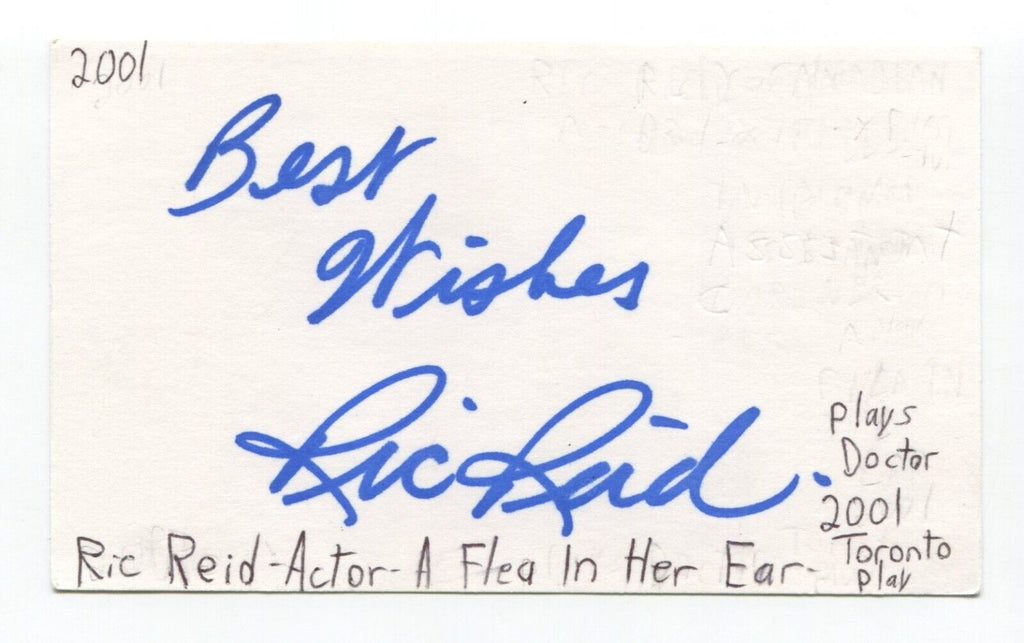 2001
Best
Wishes
Ric Reid.
plays
Doctor
2001
Toronto
play
Ric Reid-Actor-A Flea In Her Ear-